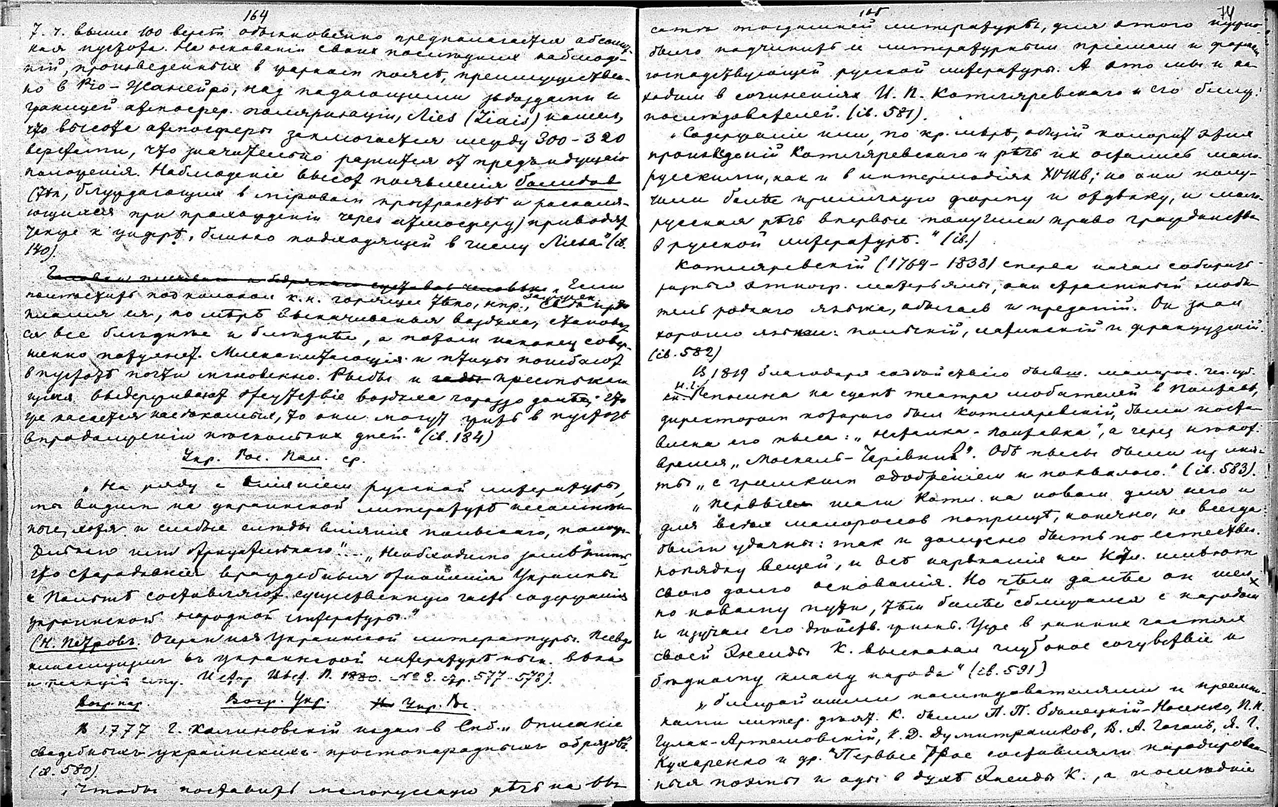 164
7. т. выше 100 верст обыкновенно предполагается абсолют-
ная пустота. На основании своих последних наблюде-
ний, произведенных в жарком поясе, преимуществен-
но в Рио-Жанейро, над падающими звездами и
границей атмосфер. поляризации, Лies (Liais) нашел,
что высота атмосферы заключается между 300-320
верстами, что значительно разнится от предъидущаго
положения. Наблюдение высот появления болидов
(тел, блуждающих в мировом пространстве и раскаля-
ющихся при прохождении через атмосферу) приводят
также к цифре, близко подходящей к числу Лieса" (ib.
140).
„Если
поместить под колокол к. н. горящее тело, напр.,
пламя ея, по мере выкачиванья воздуха, становит-
ся все бледнее и бледнее, а потом наконец совер-
шенно потухнет. Млекопитающия и птицы погибают
в пустоте почти мгновенно. Рыбы и пресмыкаю-
щияся выдерживают отсутствие воздуха гораздо долее; что
же касается насекомых, то они могут жить в пустоте
в продолжении нескольких дней." (ib. 184)
Укр. Рос. Пол. ср.
„На ряду с влиянием русской литературы,
мы видим на украинской литературе несомнен-
ные, хотя и слабые следы влияние польскаго, положи-
тельнаго или отрицательнаго"... „Необходимо заметить,
что стародавния враждебныя отношения Украины
к Польше составляют существенную часть содержания
украинской народной литературы."
(Н. Петров. Очерки из украинской литературы. Псевдо
классицизм в украинской литературе нын. века
Истор. Вест. П. 1880. № 8. стр. 577-578).
Вогр. Укр. Укр. Рос.
В 1777 г. Калиновский издал в Спб. „Описание
свадебных украинских простонародных обрядов"
(ib. 580).
„Чтобы поставить малорусскую речь на вы-
165
74
соту тогдашней литературы, для этого нужно
было подчинить и литературным приемам и формам
господствующей русской литературы. А это мы и на-
ходим в сочинениях И. П. Котляревскаго и его ближ.
последователей. (ib. 581).
„Содержание или, по кр. мере, общий колорит этих
произведений Котляревскаго и речь их остались мало-
русскими, как и в интермедиях XVIIIв; но они полу-
чили более приличную форму и отделку, и мало-
русская речь впервые получила право гражданства
в русской литературе." (ib.)
Котляревский (1769-1838) сперва начал собират-
разныя этногр. матерьялы, он страстный люби-
тель роднаго языка, обычаев и преданий. Он знал
хорошо языки: польский, латинский и французский.
(ib. 582)
В 1819 благодаря содействию бывш. малорос. ген. губ.
кн. Н. Г. Репнина на сцене театра любителей в Полтаве,
директором котораго был Котляревский, были поста-
влена его пьеса: „Наталка-Полтавка", а через некотор.
время „Москаль-Чарівник". Обе пьесы были приня-
ты „с громким одобрением и похвалою." (ib. 583).
„Первые шаги Котл. на новом для него и
для всех малоросов поприще, конечно, не всегда
были удачны: так и должно быть по естеств.
порядку вещей, и все нарекания на Котл. имеют
свою долю основания. Но чем далее он шел
по новому пути, тем более сближался с народом
и изучал его действ. жизнь. Уже в ранних частях
своей Энеиды К. высказал глубокое сочувствие к
бедному классу народа" (ib. 591)
„Ближайшими последователями и преемни-
ками литер. деят. К. были П. П. Белецкий-Носенко, П. П.
Гулак-Артемовский, К. Д. Думитрашков, В. А. Гоголь, Я. Г.
Кухаренко и др. „Первые трое составляли пародирован-
ныя поэмы и оды в духе Энеиды К., а последние